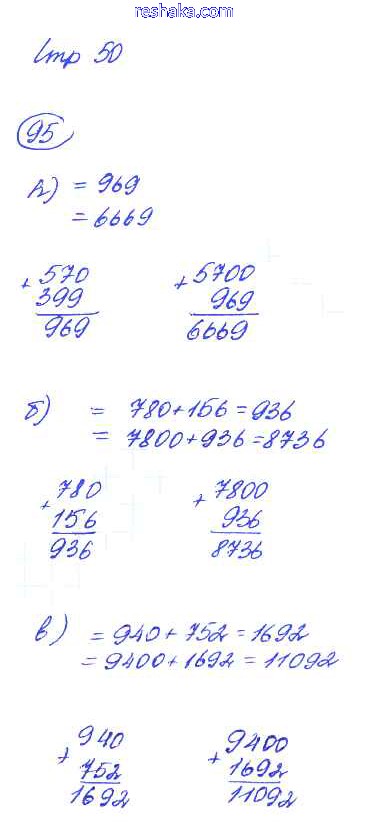 reshaka.com
Стр 50
95
А) = 969
= 6669
+ 570
399
969
+ 5700
969
6669
б) = 780+156=936
= 7800+936=8736
+ 780
156
936
+ 7800
936
8736
в) = 940+752=1692
= 9400+1692=11092
+ 940
752
1692
+ 9400
1692
11092